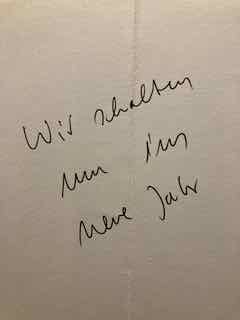 Wir schalten
nun ins
neue Jahr